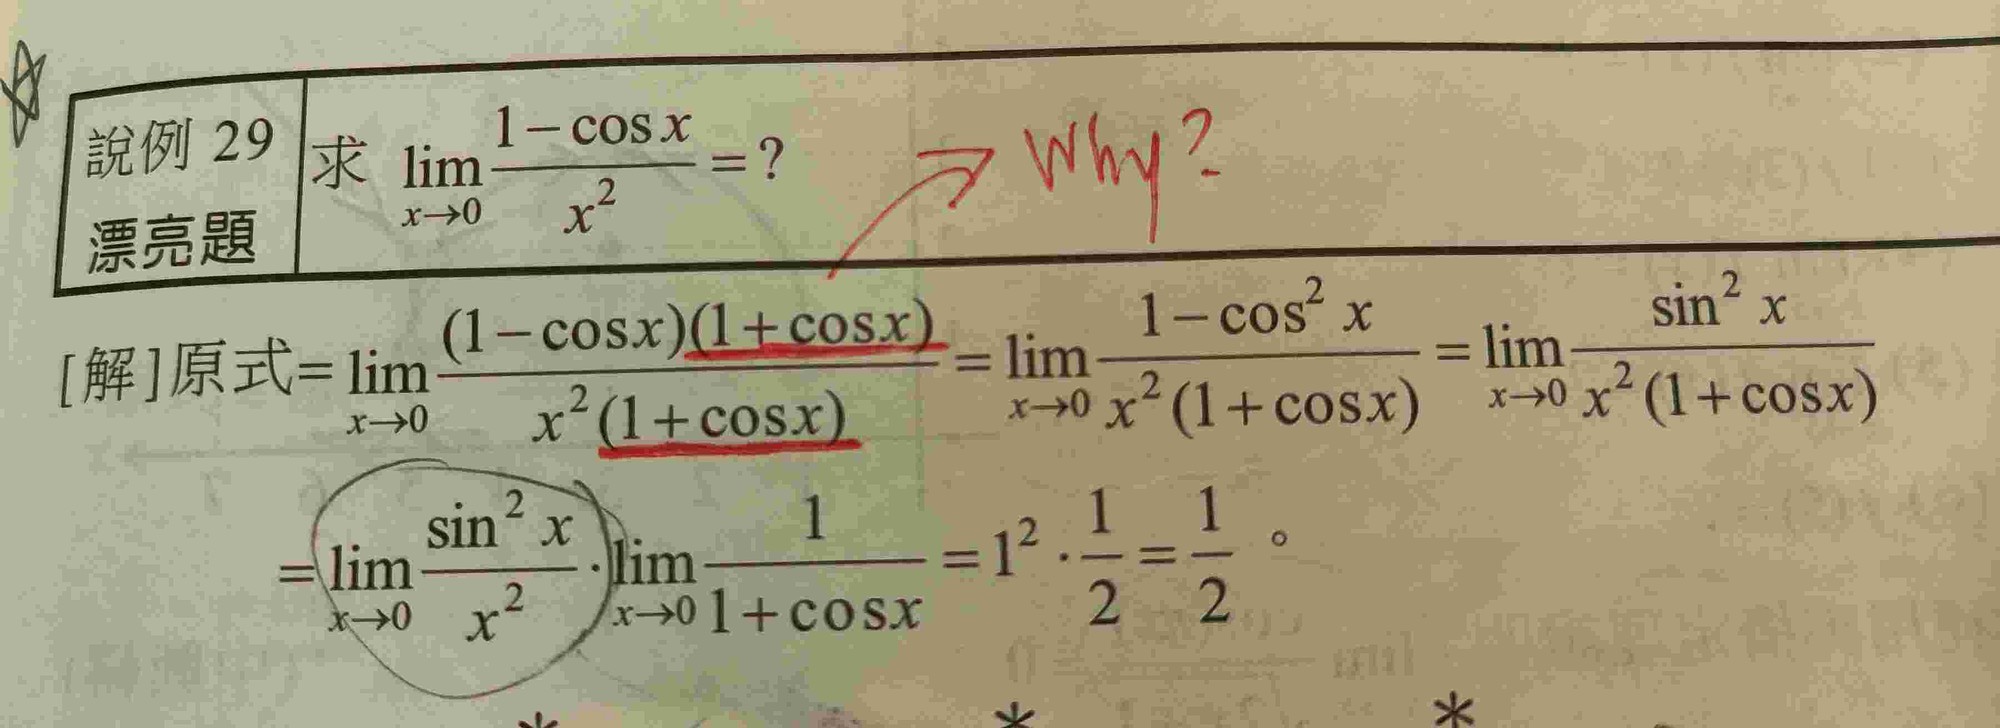 說例 29
漂亮題
求 lim_{x→0} (1-cos x)/x² = ?
Why?
[解]原式= lim_{x→0} (1-cosx)(1+cosx)/x²(1+cosx) = lim_{x→0} (1-cos² x)/x²(1+cosx) = lim_{x→0} sin² x/x²(1+cosx)
= lim_{x→0} sin² x/x² · lim_{x→0} 1/(1+cosx) = 1² · 1/2 = 1/2 。
* * *